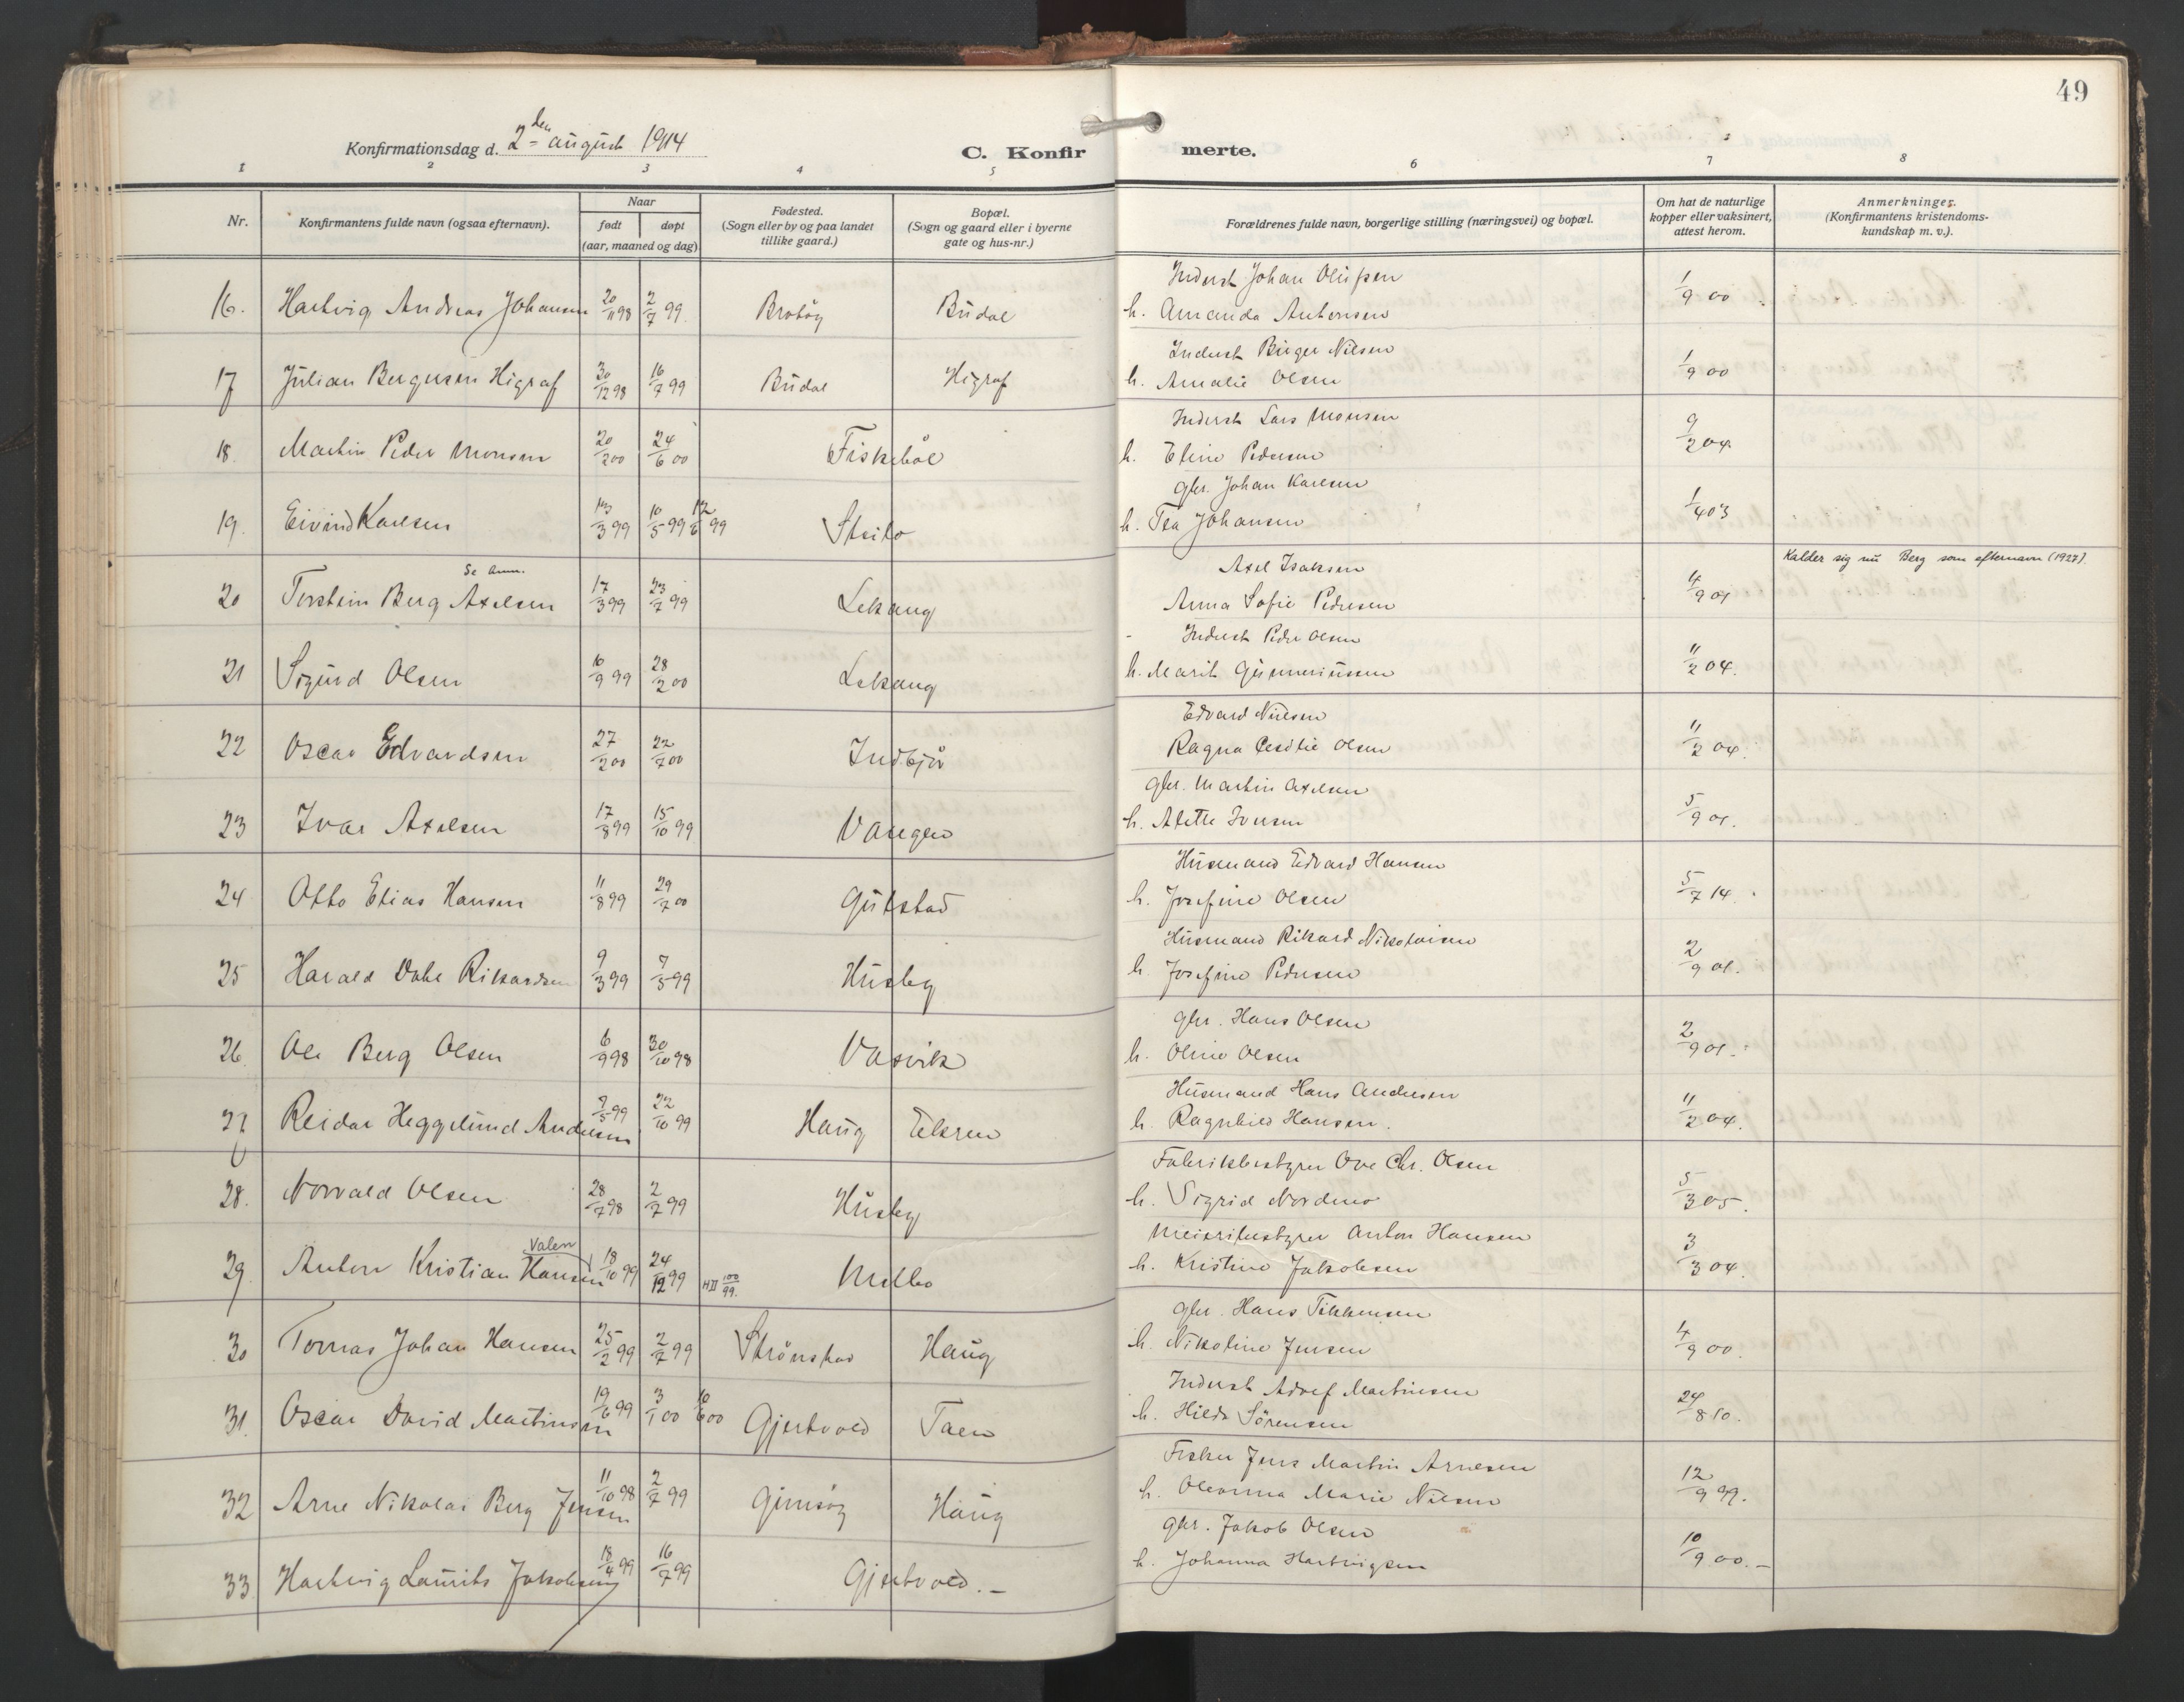 49
Konfirmationsdag d. 2den august 1914
C. Konfirmerte.
1 2 3 4 5 6 7 8
Nr.
Konfirmantens fulde navn (ogsaa efternavn).
Naar
født døpt
(aar, maaned og dag)
Fødested.
(Sogn eller by og paa landet
tillike gaard.)
Bopæl.
(Sogn og gaard eller i byerne
gate og hus-nr.)
Forældrenes fulde navn, borgerlige stilling (næringsvei) og bopæl.
Om hat de naturlige
kopper eller vaksinert,
attest herom.
Anmerkninger.
(Konfirmantens kristendoms-
kundskap m. v.).
Inderst Johan Olufsen
16. Hartvig Andreas Johansen 20/11 98 2/7 99. Brotøy Budal h. Amanda Antonsen 1/9 00
Inderst Birger Nilsen
17 Julian Bergersen Higraf 30/12 98 16/7 99 Budal Higraf h. Amalie Olsen 1/9 00
Inderst Lars Monsen
18. Martin Peder Monsen 20/2 00 24/6 00 Fiskebøl h. Eline Pedersen 9/2 04
gbr. Johan Karlsen
19. Eivind Karlsen 13/3 99 10/5 99 12/6 99 Steilo h. Tea Johansen 1/4 03
Kalder sig nu Berg som efternavn (1927).
Se Anm.
Axel Isaksen
20 Torstein Berg Axelsen 17/3 99 23/7 99 Lekang Anna Sofie Pedersen 4/9 01
Inderst Peder Olsen
21 Sigurd Olsen 10/9 99 28/2 00 Lekang h. Marit Gunneriussen 11/2 04.
Edvard Nilsen
22 Oscar Edvardsen 27/2 00 22/7 00 Indbjør Ragna Cesilie Olsen 11/2 04.
gbr. Martin Axelsen
23 Ivar Axelsen 17/8 99 15/10 99 Vangen h. Alette Iversen 5/9 01.
Husmand Edvard Hansen
24 Otto Elias Hansen 11/8 99 29/7 00 Gulstad h. Josefine Olsen 5/7 14.
Husmand Rikard Nikolaisen
25 Harald Dahl Rikardsen 9/3 99 7/5 99 Husby h. Josefine Pedersen 2/9 01.
gbr. Hans Olsen
26. Ole Berg Olsen 6/9 98 30/10 98 Vasvik h. Oline Olsen 2/9 01.
Husmand Hans Andersen
27 Reidar Heggelund Andersen 7/5 99 22/10 99 Haug Eilsren h. Ragnhild Hansen. 11/2 04.
Fabrikbestyrer Ove Chr. Olsen
28. Norvald Olsen 28/7 98 2/7 99 Husby h. Sigrid Nordmo 5/3 05.
Valen
Meieribestyrer Anton Hansen
29. Anton Kristian Hansen 18/10 99 24/12 99 H II 100/99. Melbo h. Kristine Jakobsen 3/3 04.
gbr. Hans Tikkensen
30 Tomas Johan Hansen 25/2 99 2/7 99 Strønstad Haug h. Nikoline Jensen 4/9 00.
Inderst Adolf Martinsen
31. Oscar David Martinsen 19/6 99 3/1 00 10/6 00 Gjertvold Taen h. Hilda Sørensen 24/8 10.
Fisker Jens Martin Arnesen
32 Arne Nikolai Berg Jensen 11/10 98 2/7 99 Gimsøy Haug h. Oleanna Marie Nilsen 12/9 99.
gbr. Jakob Olsen
33. Hartvig Laurits Jakobsen 18/4 99 16/7 99 Gjertvold. – h. Johanna Hartvigsen 10/9 00. –